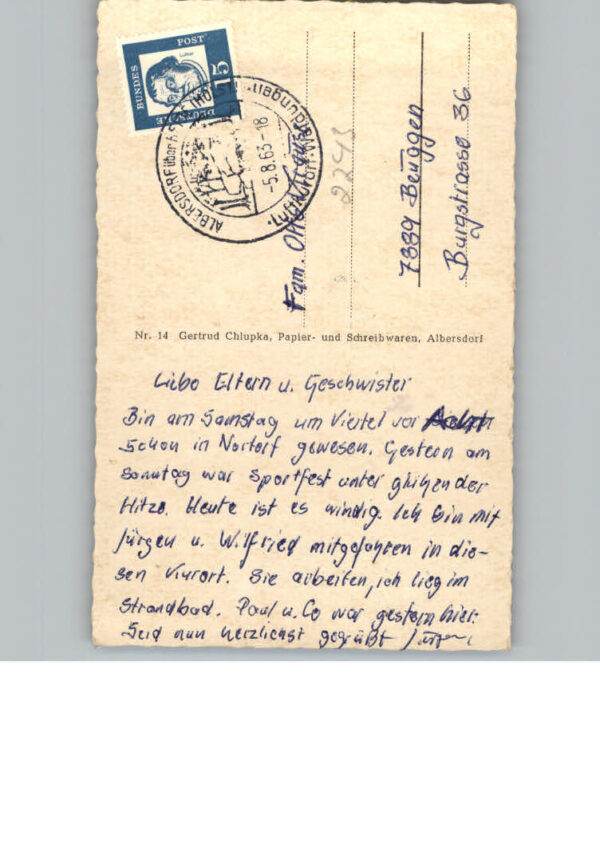 BUNDES POST
15
DEUTSCHE
Luther
ALBERSDORF über
Luftkurort
-5.8.63-18
2243
Fam. Otto
7889 Beuggen
Burgstrasse 36
Nr. 14 Gertrud Chlupka, Papier- und Schreibwaren, Albersdorf
Liebe Eltern u. Geschwister
Bin am Samstag um Viertel vor Acht
schon in Nortorf gewesen. Gestern am
Sonntag war Sportfest unter glühender
Hitze. Heute ist es windig. Ich bin mit
Jürgen u. Wilfried mitgefahren in die-
sen Kurort. Sie arbeiten, ich lieg im
Strandbad. Paul u. Co war gestern hier.
Seid nun herzlichst gegrüßt